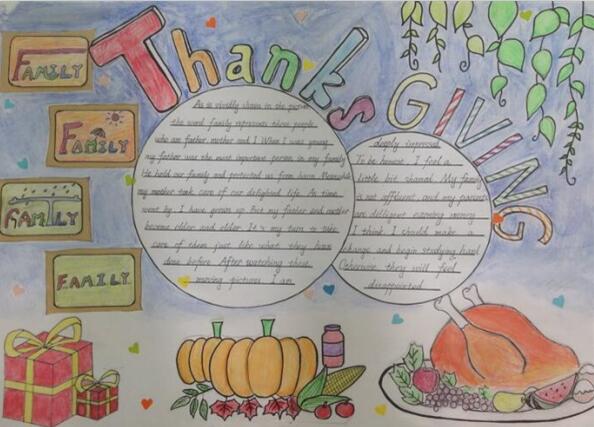 Thanks
GIVING
FAMILY
FAMILY
FAMILY
FAMILY
As is vividly shown in the picture
the word family expresses three people,
who are father mother and I. When I was young
my father was the most important person in my family
He held our family and protected us from harm. Meanwhile
my mother took care of our delighted life. As time
went by, I have grown up. But my father and mother
become older and older. It is my turn to take
care of them just like what they have
done before. After watching these
moving pictures. I am
deeply impressed
To be honest, I feel a
little bit shamed. My family
is not affluent and my parents
are diligent earning money
I think I should make a
change and begin studying hard
Otherwise they will feel
disappointed